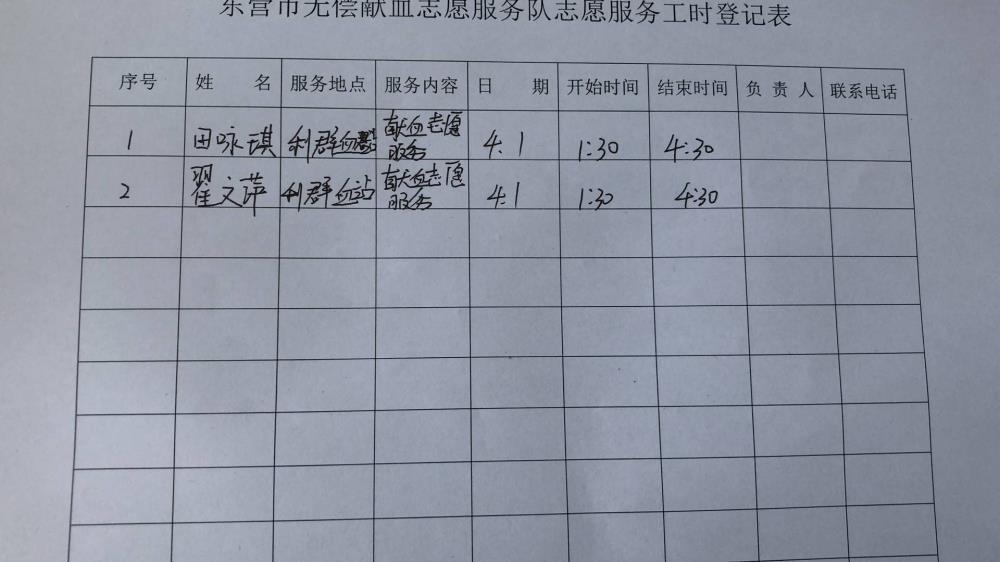 东营市无偿献血志愿服务队志愿服务工时登记表
序号 姓名 服务地点 服务内容 日期 开始时间 结束时间 负责人 联系电话
1 田咏琪 利群血站 献血志愿服务 4.1 1:30 4:30
2 翟文萍 利群血站 献血志愿服务 4.1 1:30 4:30